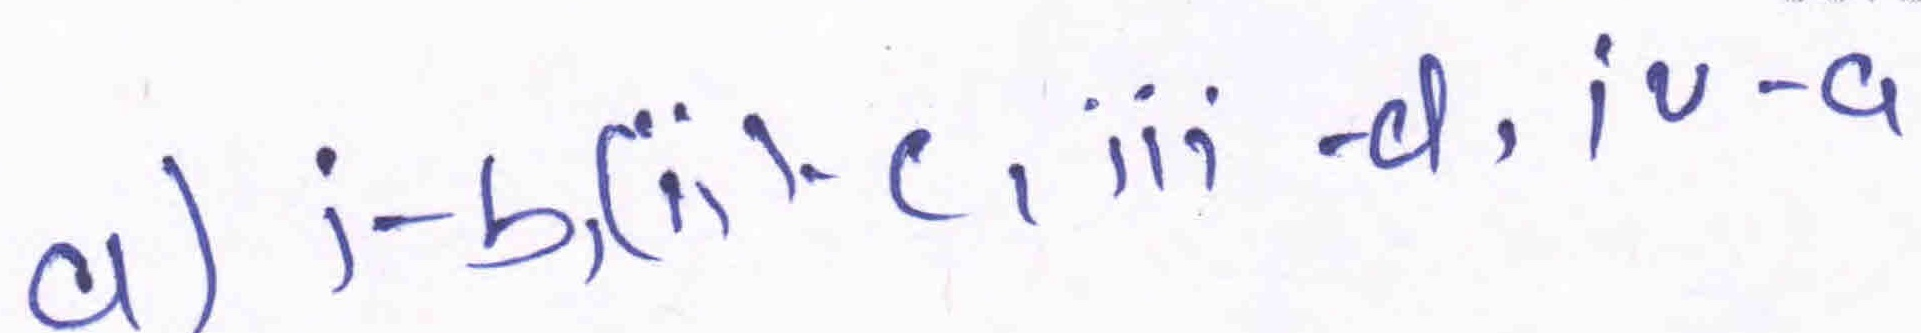 a) i-b, (ii)- c, iii -d, iv -a